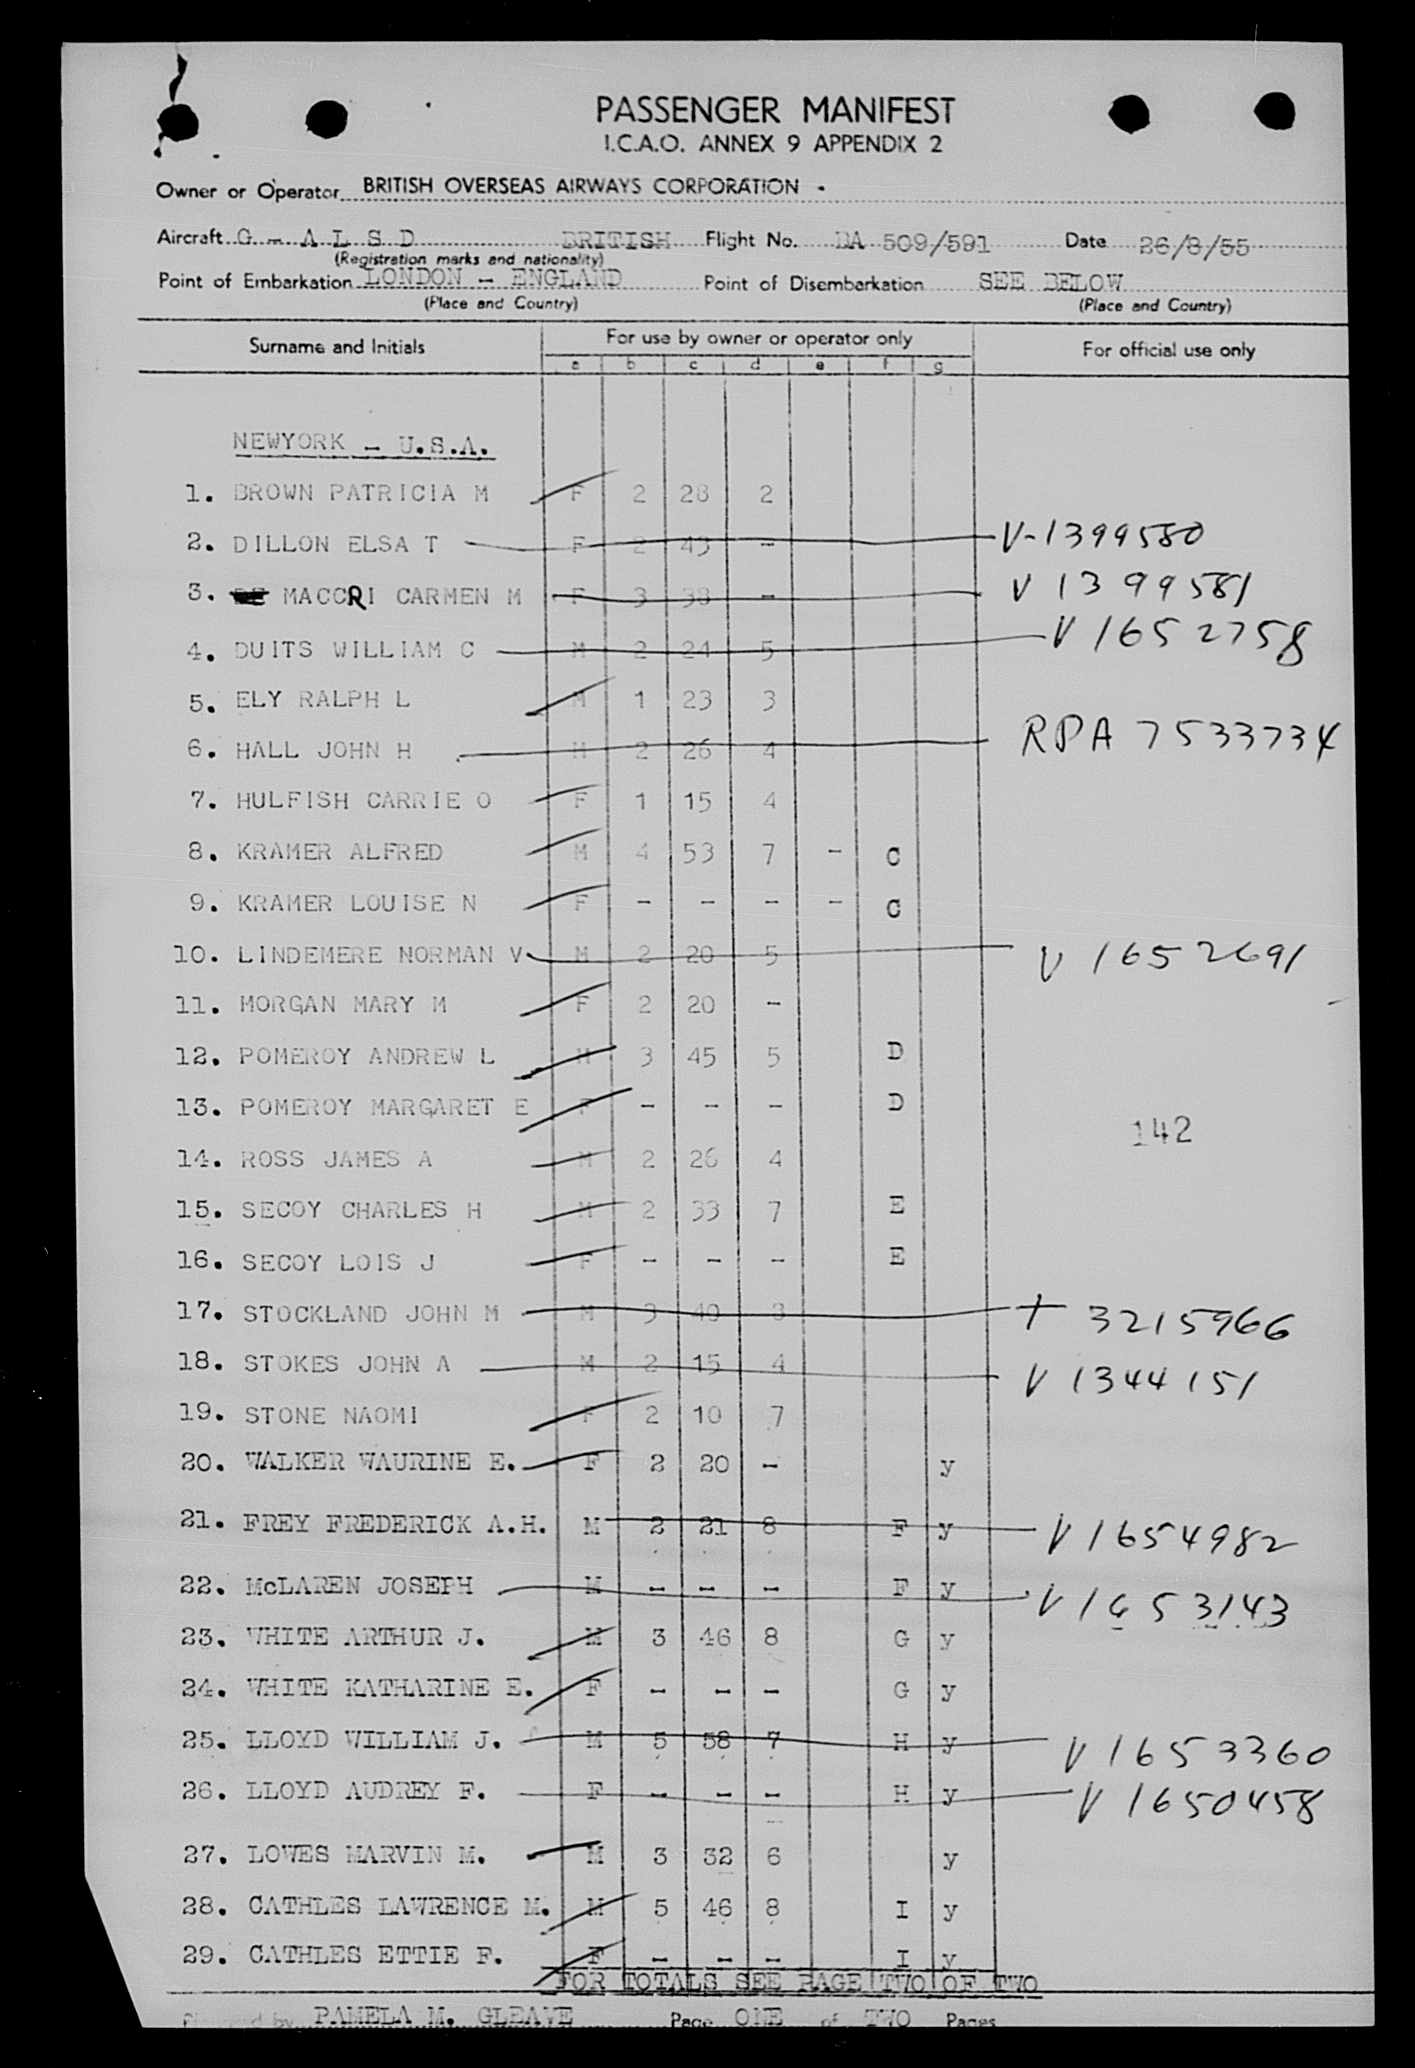 PASSENGER MANIFEST
I.C.A.O. ANNEX 9 APPENDIX 2
Owner or Operator BRITISH OVERSEAS AIRWAYS CORPORATION
Aircraft G - A L S D BRITISH Flight No. BA 509/591 Date 26/8/55
(Registration marks and nationality)
Point of Embarkation LONDON - ENGLAND Point of Disembarkation SEE BELOW
(Place and Country) (Place and Country)
Surname and Initials For use by owner or operator only For official use only
a b c d e f g
NEWYORK - U.S.A.
1. BROWN PATRICIA M F 2 28 2
2. DILLON ELSA T F 2 43 - V-1399580
3. MACCRI CARMEN M F 3 38 - V 1399581
4. DUITS WILLIAM C M 2 24 5 V 1652758
5. ELY RALPH L M 1 23 3
6. HALL JOHN H M 2 26 4 RPA 7533734
7. HULFISH CARRIE O F 1 15 4
8. KRAMER ALFRED M 4 53 7 - C
9. KRAMER LOUISE N F - - - - C
10. LINDEMERE NORMAN V M 2 20 5 V 1652691
11. MORGAN MARY M F 2 20 -
12. POMEROY ANDREW L M 3 45 5 D
13. POMEROY MARGARET E F - - - D
142
14. ROSS JAMES A M 2 26 4
15. SECOY CHARLES H M 2 33 7 E
16. SECOY LOIS J F - - - E
17. STOCKLAND JOHN M M 3 40 8 + 3215966
18. STOKES JOHN A M 2 15 4 V 1344151
19. STONE NAOMI F 2 10 7
20. WALKER WAURINE E. F 2 20 - y
21. FREY FREDERICK A.H. M 2 21 8 F y V 1654982
22. McLAREN JOSEPH M - - - F y V 1653143
23. WHITE ARTHUR J. M 3 46 8 G y
24. WHITE KATHARINE E. F - - - G y
25. LLOYD WILLIAM J. M 5 58 7 H y V 1653360
26. LLOYD AUDREY F. F - - - H y V 1650458
27. LOWES MARVIN M. M 3 32 6 y
28. CATHLES LAWRENCE M. M 5 46 8 I y
29. CATHLES ETTIE F. F - - - I y
FOR TOTALS SEE PAGE TWO OF TWO
by PAMELA M. GLEAVE Page ONE of TWO Pages